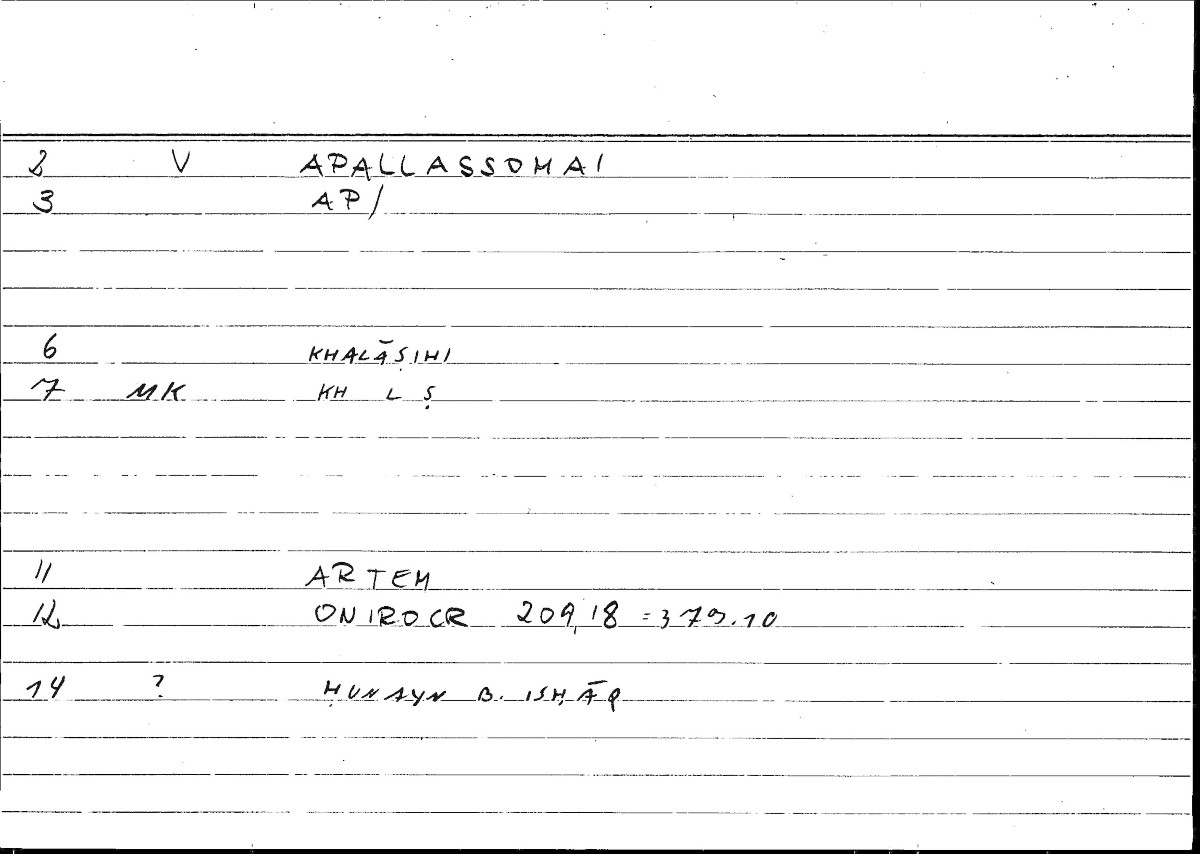 2 V APALLASSOMAI
3 AP/
6 KHALĀṢIHI
7 MK KH L Ṣ
11 ARTEM
12 ONIROCR 209,18 = 379.10
14 ? ḤUNAYN B. ISḤĀQ